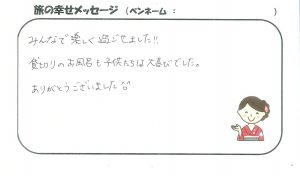 旅の幸せメッセージ （ペンネーム： ）
みんなで楽しく過ごせました!!
貸切りのお風呂も子供たちは大喜びでした。
ありがとうございました^^